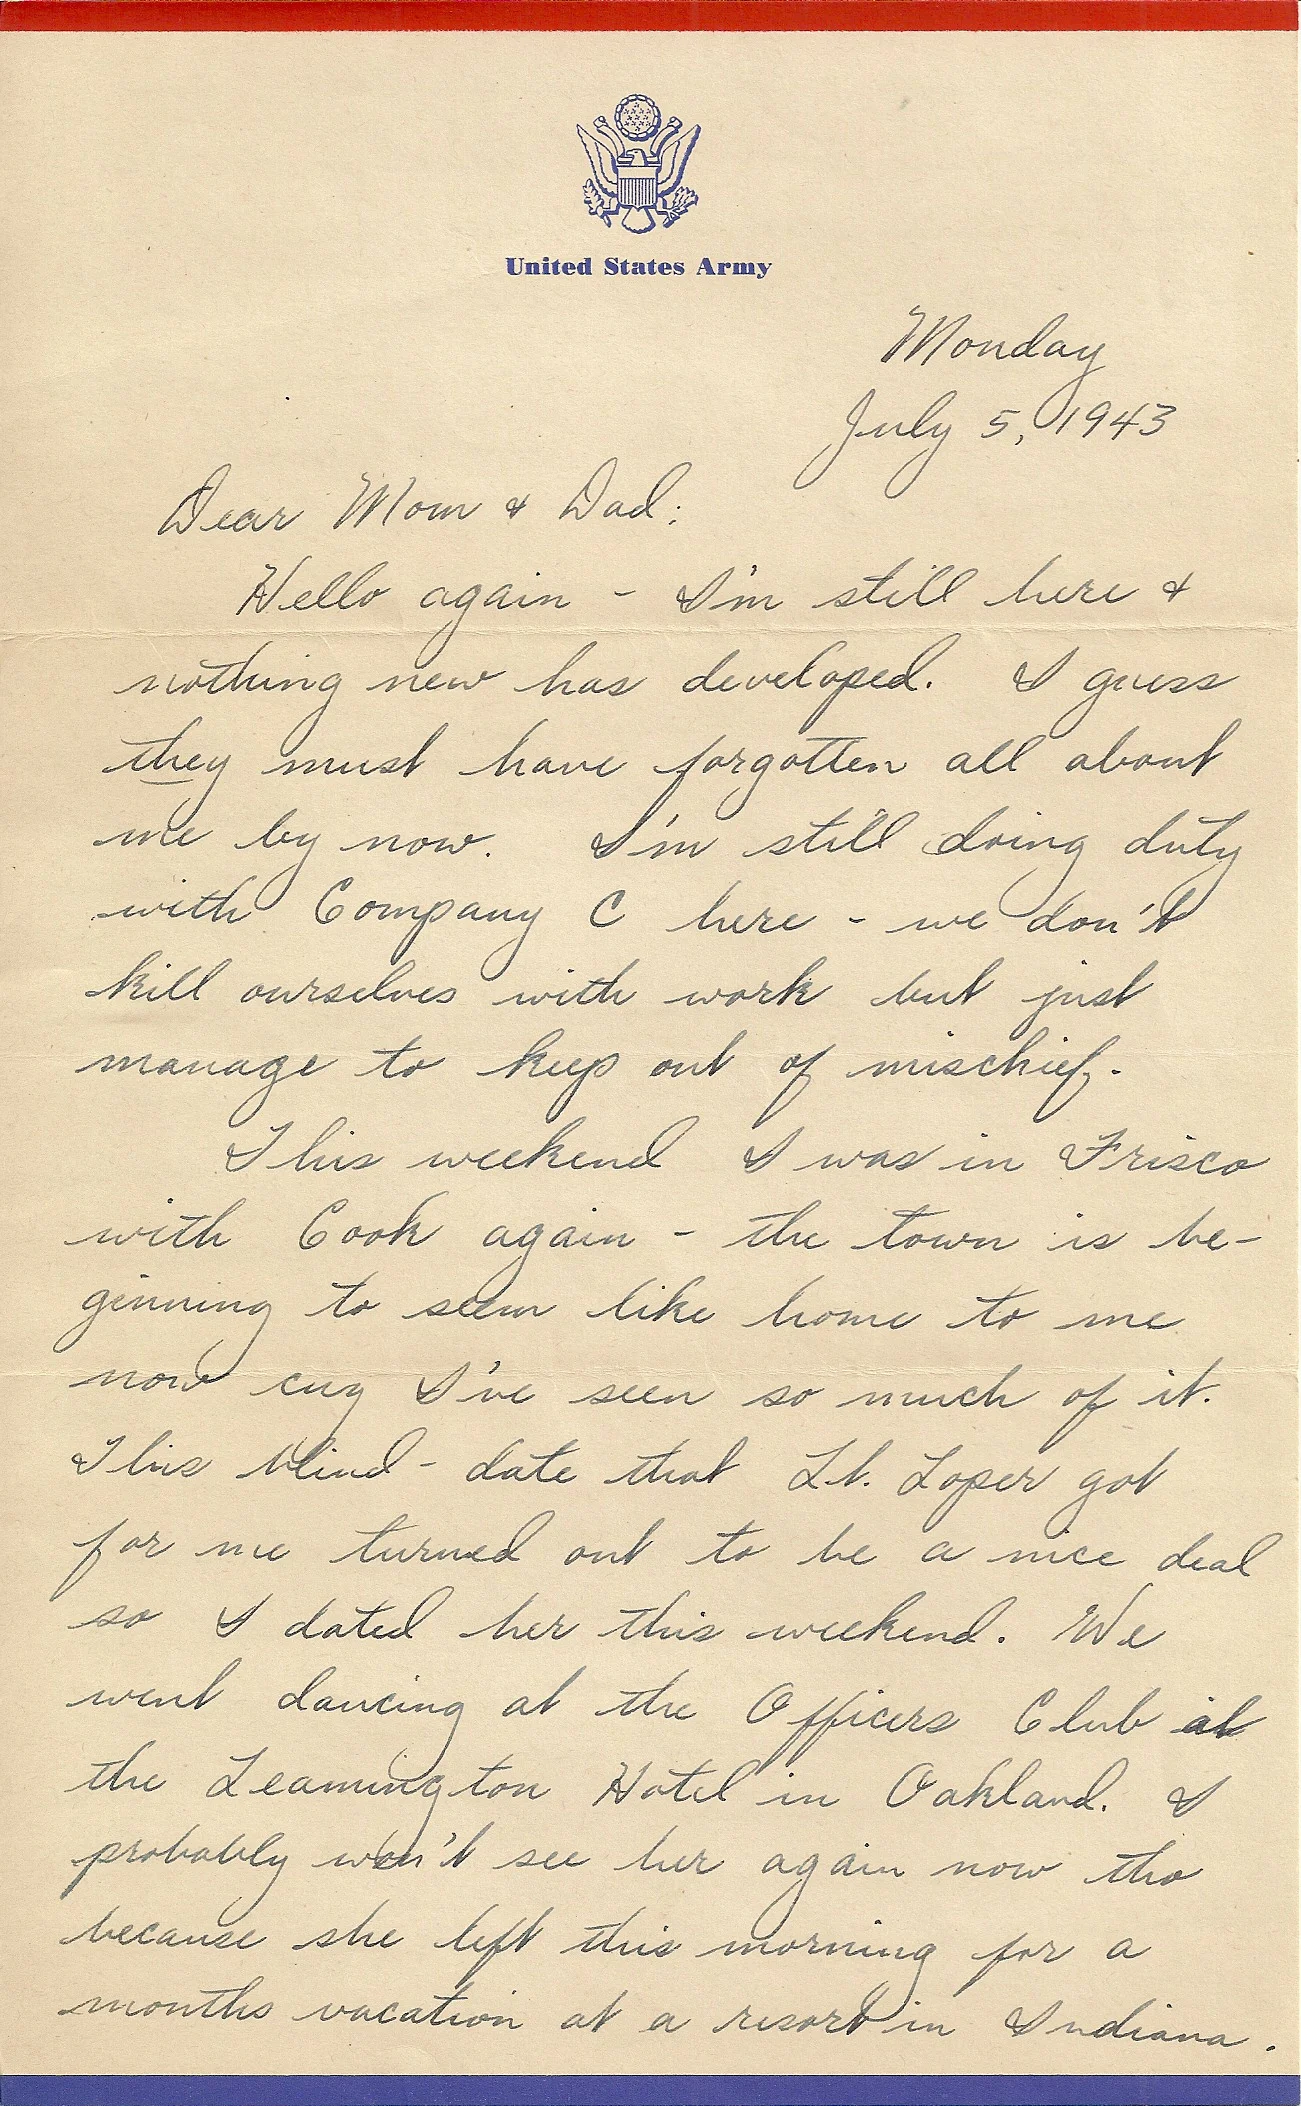 United States Army
Monday
July 5, 1943
Dear Mom & Dad:
Hello again - I'm still here &
nothing new has developed. I guess
they must have forgotten all about
me by now. I'm still doing duty
with Company C here - we don't
kill ourselves with work but just
manage to keep out of mischief.
This weekend I was in Frisco
with Cook again - the town is be-
ginning to seem like home to me
now cuz I've seen so much of it.
This blind-date that Lt. Loper got
for me turned out to be a nice deal
so I dated her this weekend. We
went dancing at the Officers Club at
the Leamington Hotel in Oakland. I
probably won't see her again now tho
because she left this morning for a
months vacation at a resort in Indiana.